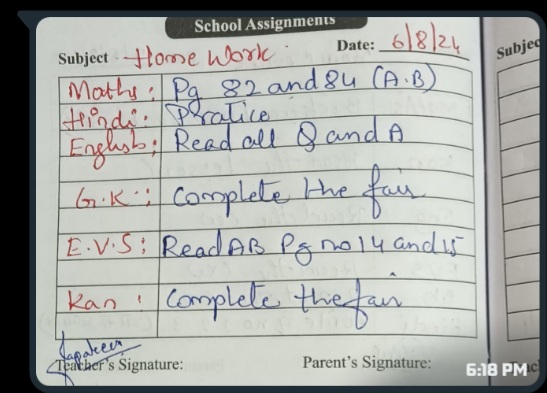 School Assignments
Subject Home Work Date: 6/8/24
Subjec
Maths: Pg 82 and 84 (A.B)
Hindi: Pratice
English: Read all Q and A
G.K: Complete the fair
E.V.S: Read AB Pg no 14 and 15
Kan: Complete the fair
Teacher's Signature: Parent's Signature:
6:18 PM